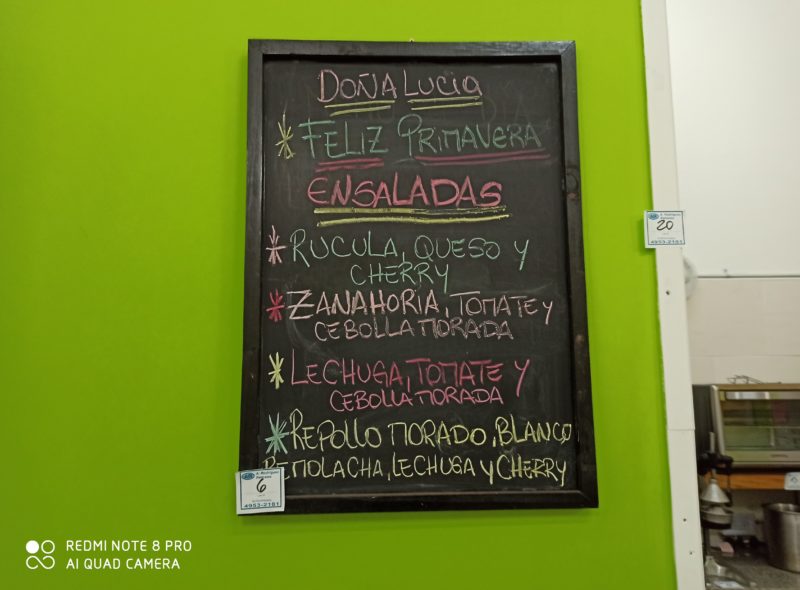 DOÑA LUCIA
* FELIZ PRIMAVERA
ENSALADAS
* RUCULA, QUESO Y
CHERRY
* ZANAHORIA, TOMATE Y
CEBOLLA MORADA
* LECHUGA, TOMATE Y
CEBOLLA MORADA
* REPOLLO MORADO, BLANCO
REMOLACHA, LECHUGA Y CHERRY
6
4953-2181
20
4953-2181
REDMI NOTE 8 PRO
AI QUAD CAMERA